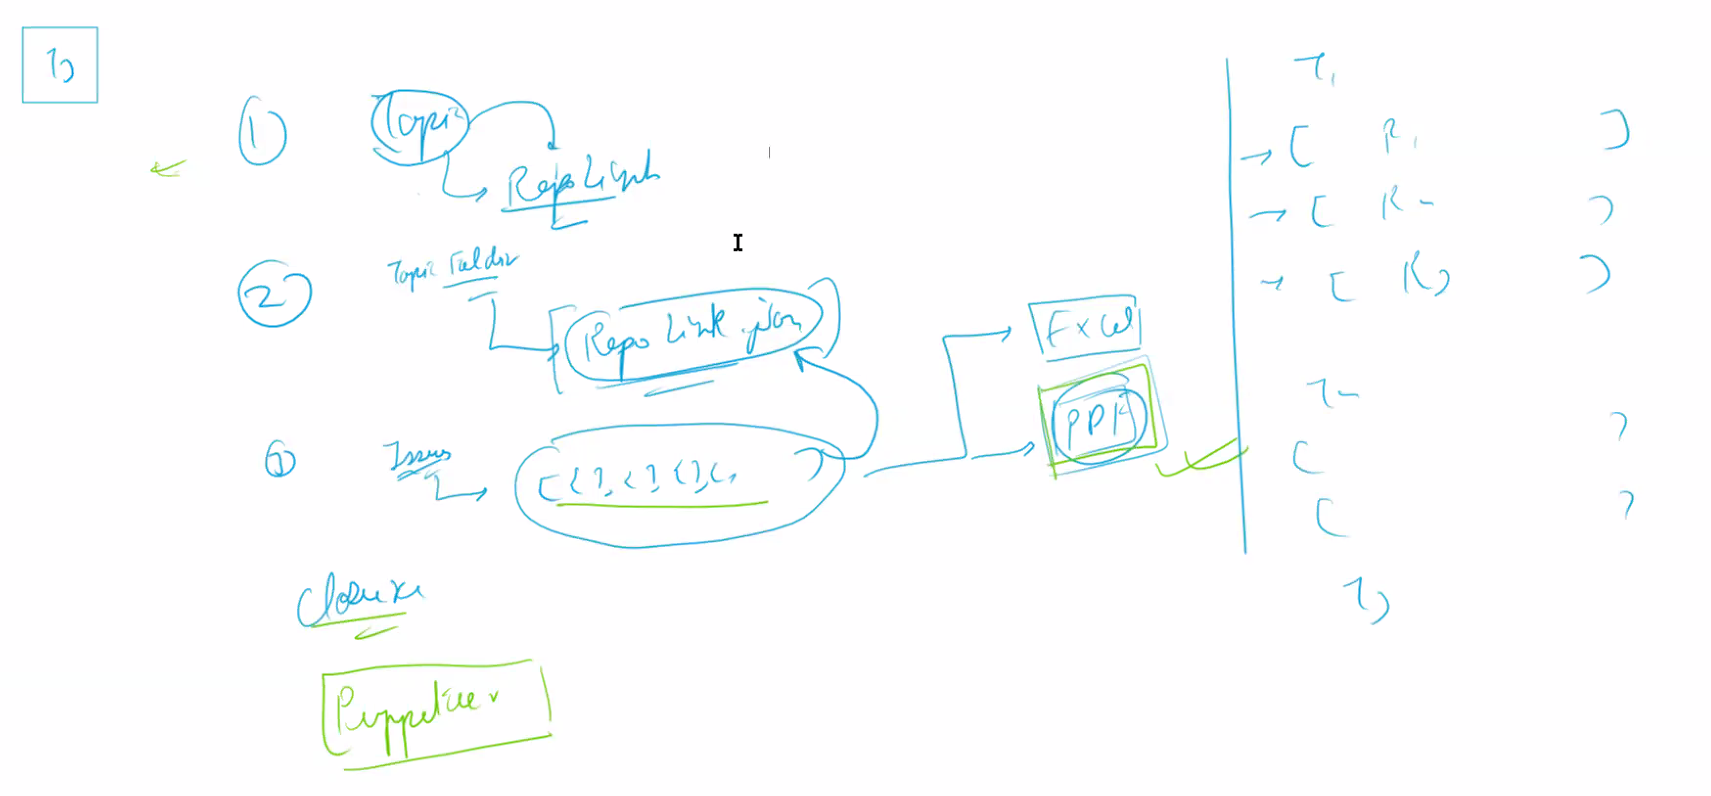 T3
① Topic
Repo Links
② Topic Folder
[Repo Link .json]
③ Issues
[{ }, { }, { }, {, ]
Excel
PDF
Closure
Puppeteer
T1
→ [ R1 ]
→ [ R2 ]
→ [ R3 ]
T2
[ ]
[ ]
T3